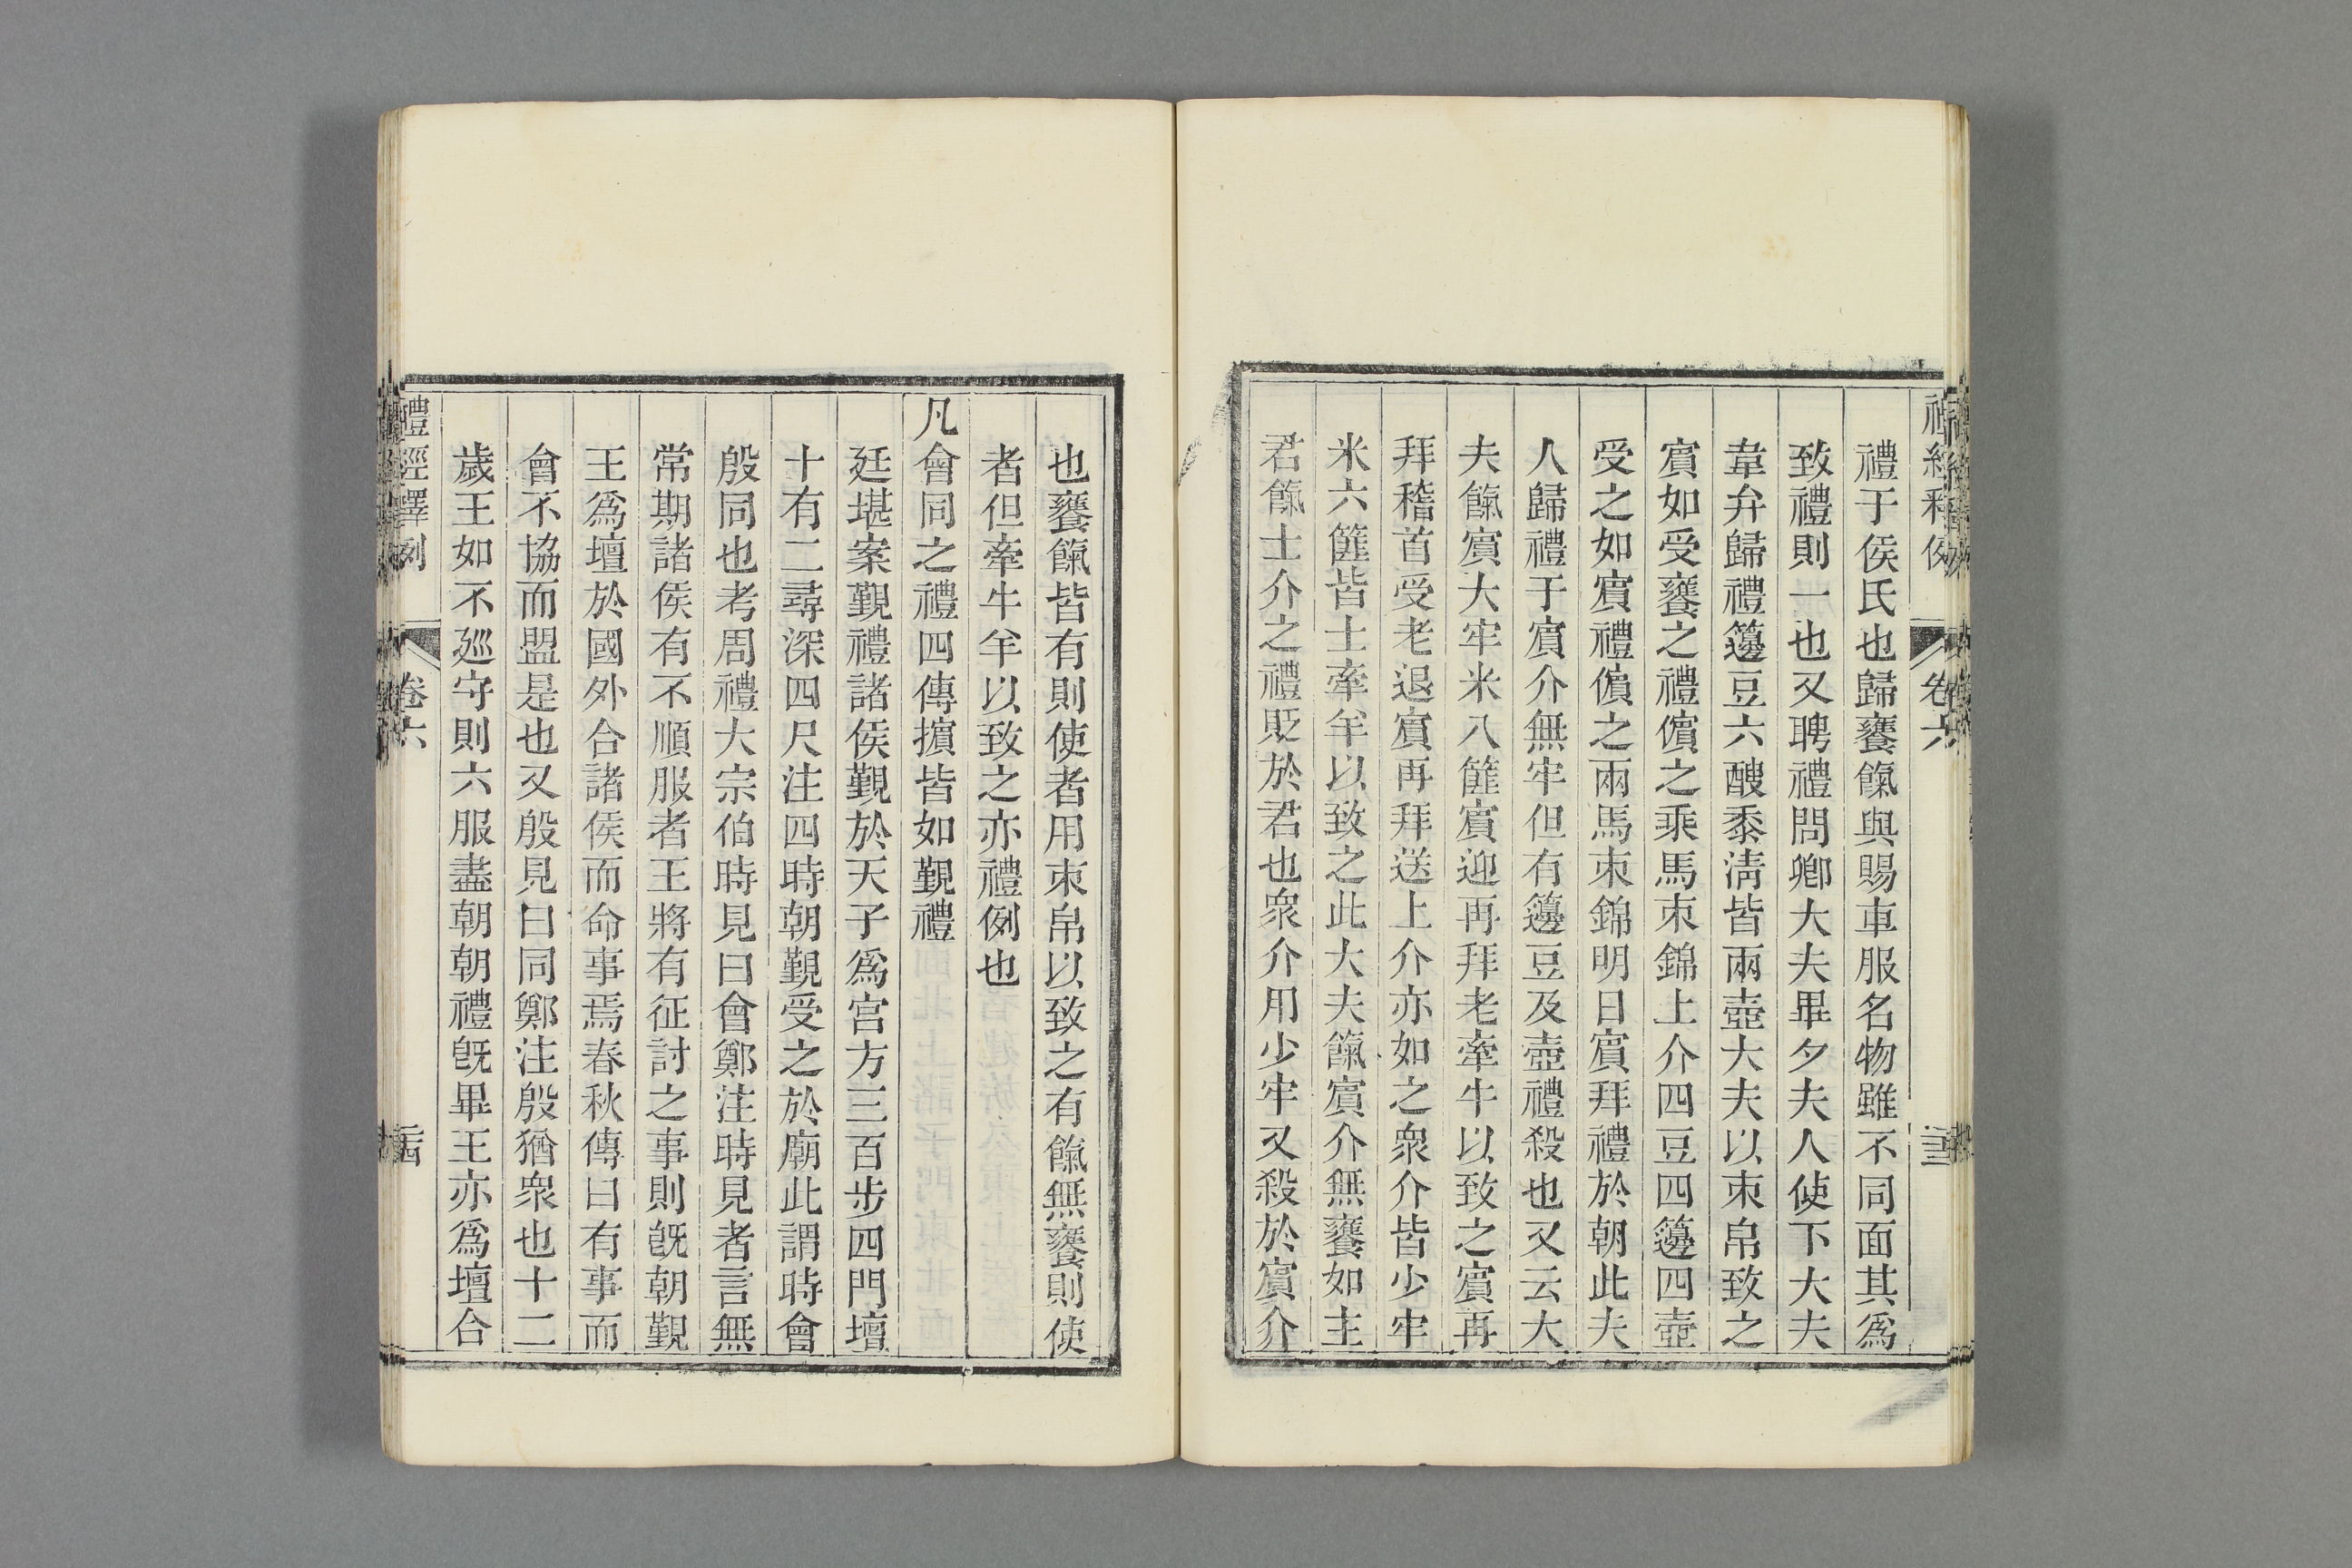 禮于侯氏也歸饔餼與賜車服名物雖不同面其爲
致禮則一也又聘禮問卿大夫畢夕夫人使下大夫
韋弁歸禮籩豆六醙黍淸皆兩壺大夫以束帛致之
賓如受饔之禮儐之乘馬束錦上介四豆四籩四壺
受之如賓禮儐之兩馬束錦明日賓拜禮於朝此夫
人歸禮于賓介無牢但有籩豆及壺禮殺也又云大
夫餼賓大牢米八筐賓迎再拜老牽牛以致之賓再
拜稽首受老退賓再拜送上介亦如之衆介皆少牢
米六筐皆士牽羊以致之此大夫餼賓介無饔如主
君餼士介之禮貶於君也衆介用少牢又殺於賓介
也饔餼皆有則使者用束帛以致之有餼無饔則使
者但牽牛羊以致之亦禮例也
凡會同之禮四傳擯皆如覲禮
廷堪案覲禮諸侯覲於天子爲宮方三百步四門壇
十有二尋深四尺注四時朝覲受之於廟此謂時會
殷同也考周禮大宗伯時見曰會鄭注時見者言無
常期諸侯有不順服者王將有征討之事則旣朝覲
王爲壇於國外合諸侯而命事焉春秋傳曰有事而
會不協而盟是也又殷見曰同鄭注殷猶衆也十二
歲王如不廵守則六服盡朝朝禮旣畢王亦爲壇合
禮經釋例
卷六